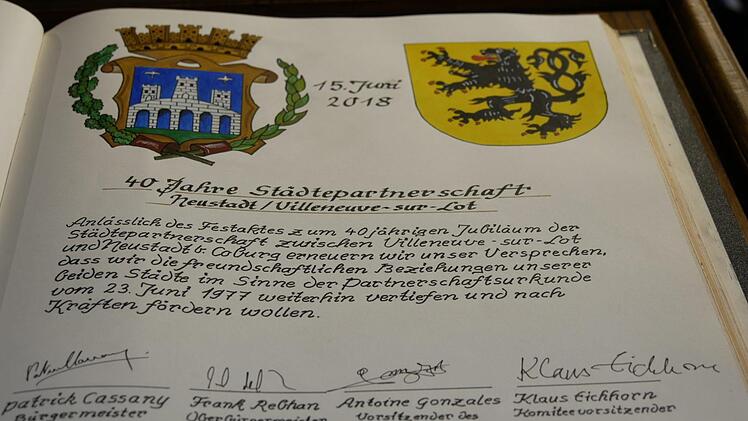 15. Juni
2018
40 Jahre Städtepartnerschaft
Neustadt/Villeneuve-sur-Lot
Anlässlich des Festaktes zum 40jährigen Jubiläum der
Städtepartnerschaft zwischen Villeneuve-sur-Lot
und Neustadt b. Coburg erneuern wir unser Versprechen,
dass wir die freundschaftlichen Beziehungen unserer
beiden Städte im Sinne der Partnerschaftsurkunde
vom 23. Juni 1977 weiterhin vertiefen und nach
Kräften fördern wollen.
Klaus Eichhorn
Patrick Cassany Frank Rebhan Antoine Gonzales Klaus Eichhorn
Bürgermeister Oberbürgermeister Vorsitzender des Komiteevorsitzender